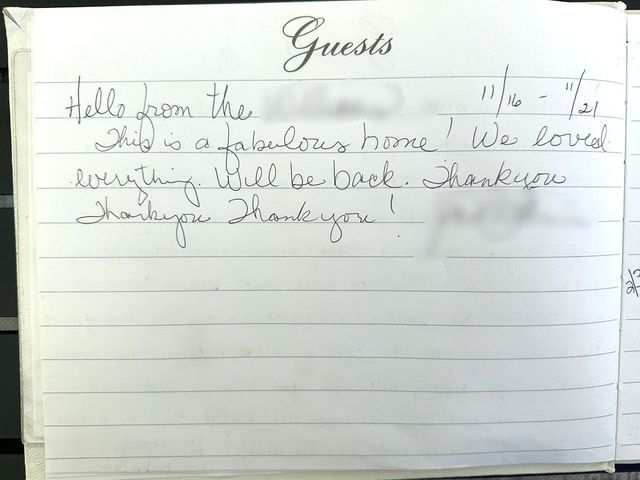 Guests
Hello from the 11/16 - 11/21
This is a fabulous home! We loved
everything. Will be back. Thankyou
Thankyou Thankyou!